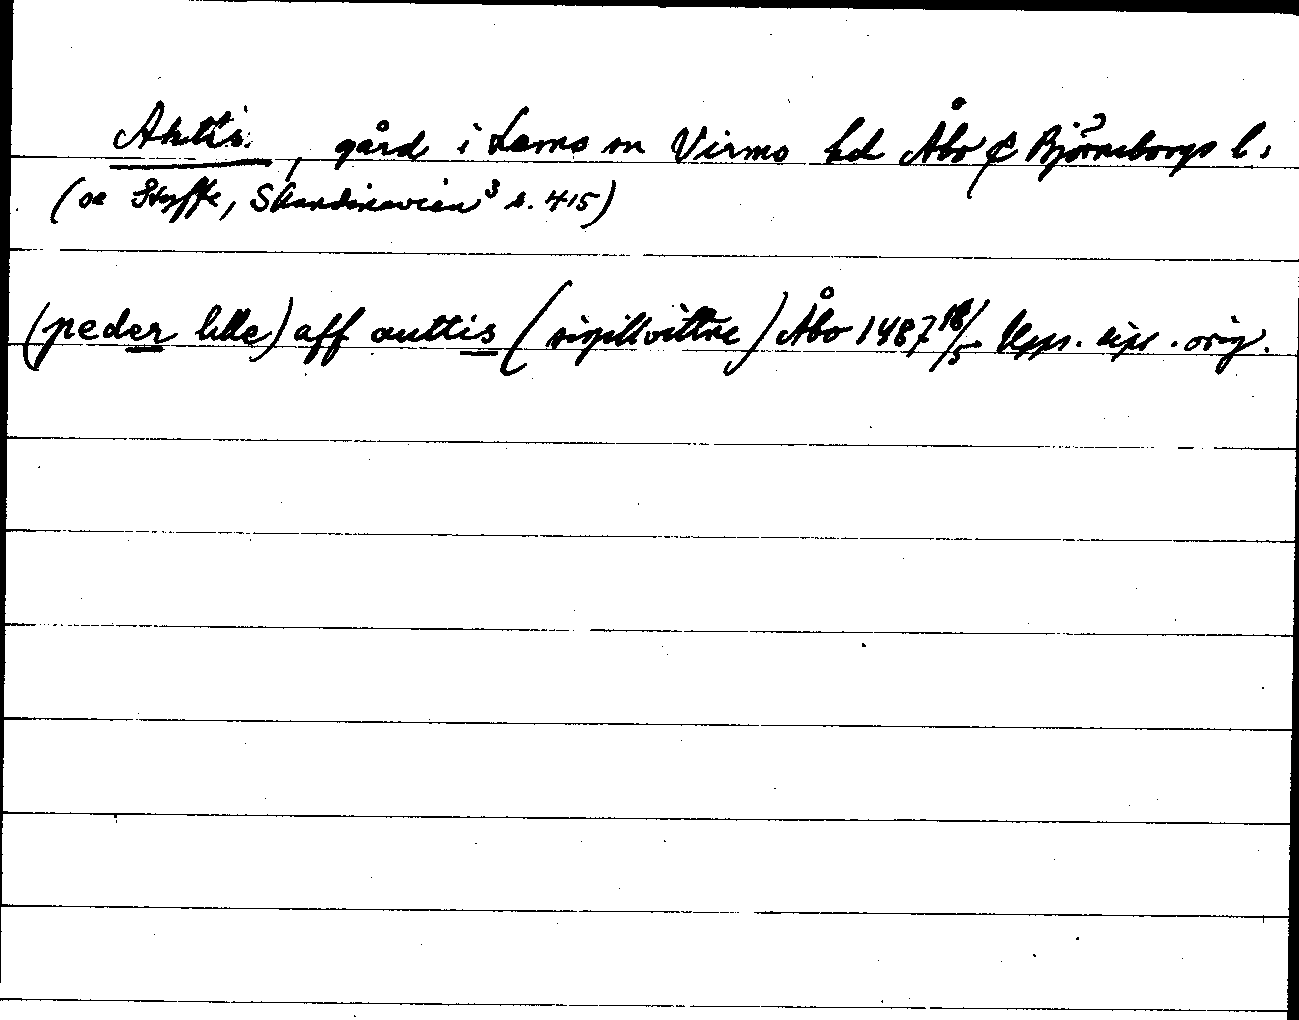 Ahtis, gård i Lemo sn Virmo hd Åbo & Björneborgs l.
(se Styffe, Skandinavien³ s. 415)
(peder lille) aff auttis (sigillvittne) Åbo 1487 18/5 Upps. dipl. orig.